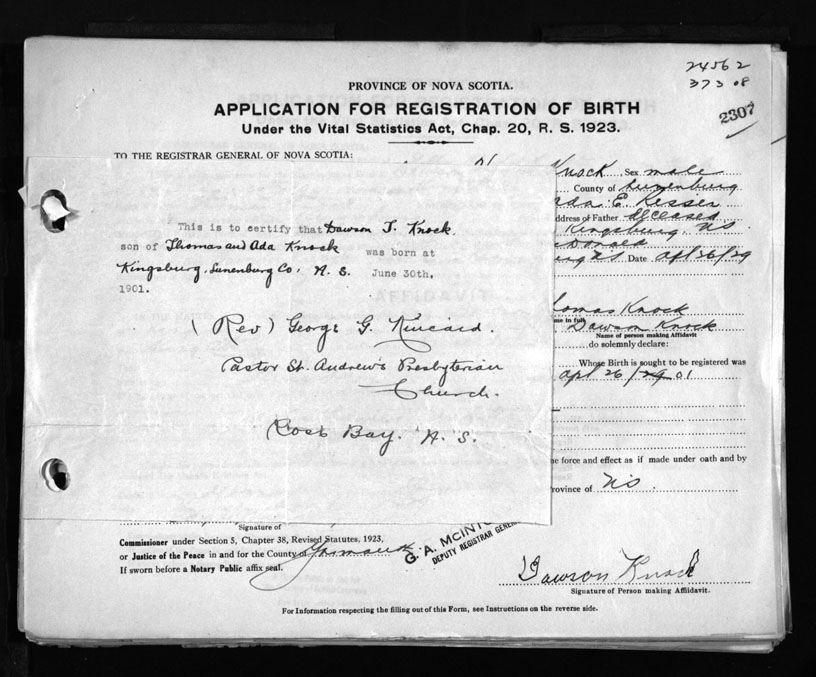 24562
37308
2307
PROVINCE OF NOVA SCOTIA.
APPLICATION FOR REGISTRATION OF BIRTH
Under the Vital Statistics Act, Chap. 20, R. S. 1923.
TO THE REGISTRAR GENERAL OF NOVA SCOTIA:
This is to certify that Dawson T. Knock,
son of Thomas and Ada Knock was born at
Kingsburg, Lunenburg Co, N. S. June 30th,
1901.
(Rev) George G. Kincaid.
Pastor St. Andrew's Presbyterian
Church.
Rose Bay. N. S.
Knock Sex male
County of Lunenburg
Ada E
ddress of Father deceased
Kingsburg NS
Donald
NS Date Apl 26/29
AFFIDAVIT
homas Knock
me in full
Dawson Knock
Name of person making Affidavit
do solemnly declare:
Whose Birth is sought to be registered was
Apl 26/29 01
he force and effect as if made under oath and by
rovince of NS.
Signature of
Commissioner under Section 5, Chapter 38, Revised Statutes, 1923,
or Justice of the Peace in and for the County of Yarmouth
If sworn before a Notary Public affix seal.
G. A. McINTO
DEPUTY REGISTRAR GENER
Dawson Knock
Signature of Person making Affidavit.
For Information respecting the filling out of this Form, see Instructions on the reverse side.